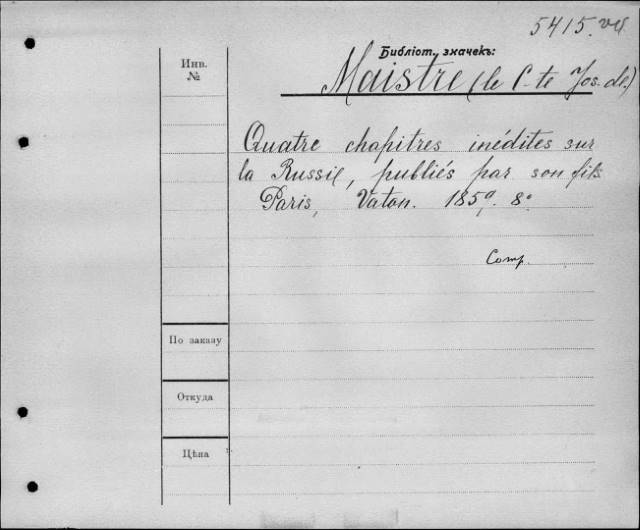 5415.
Библіот. значекъ:
Инв.
№
Maistre (le C-te Jos. de.)
Quatre chapitres inédites sur
la Russie, publiés par son fils
Paris, Vaton. 1859. 8°
Comp.
По заказу
Откуда
Цѣна